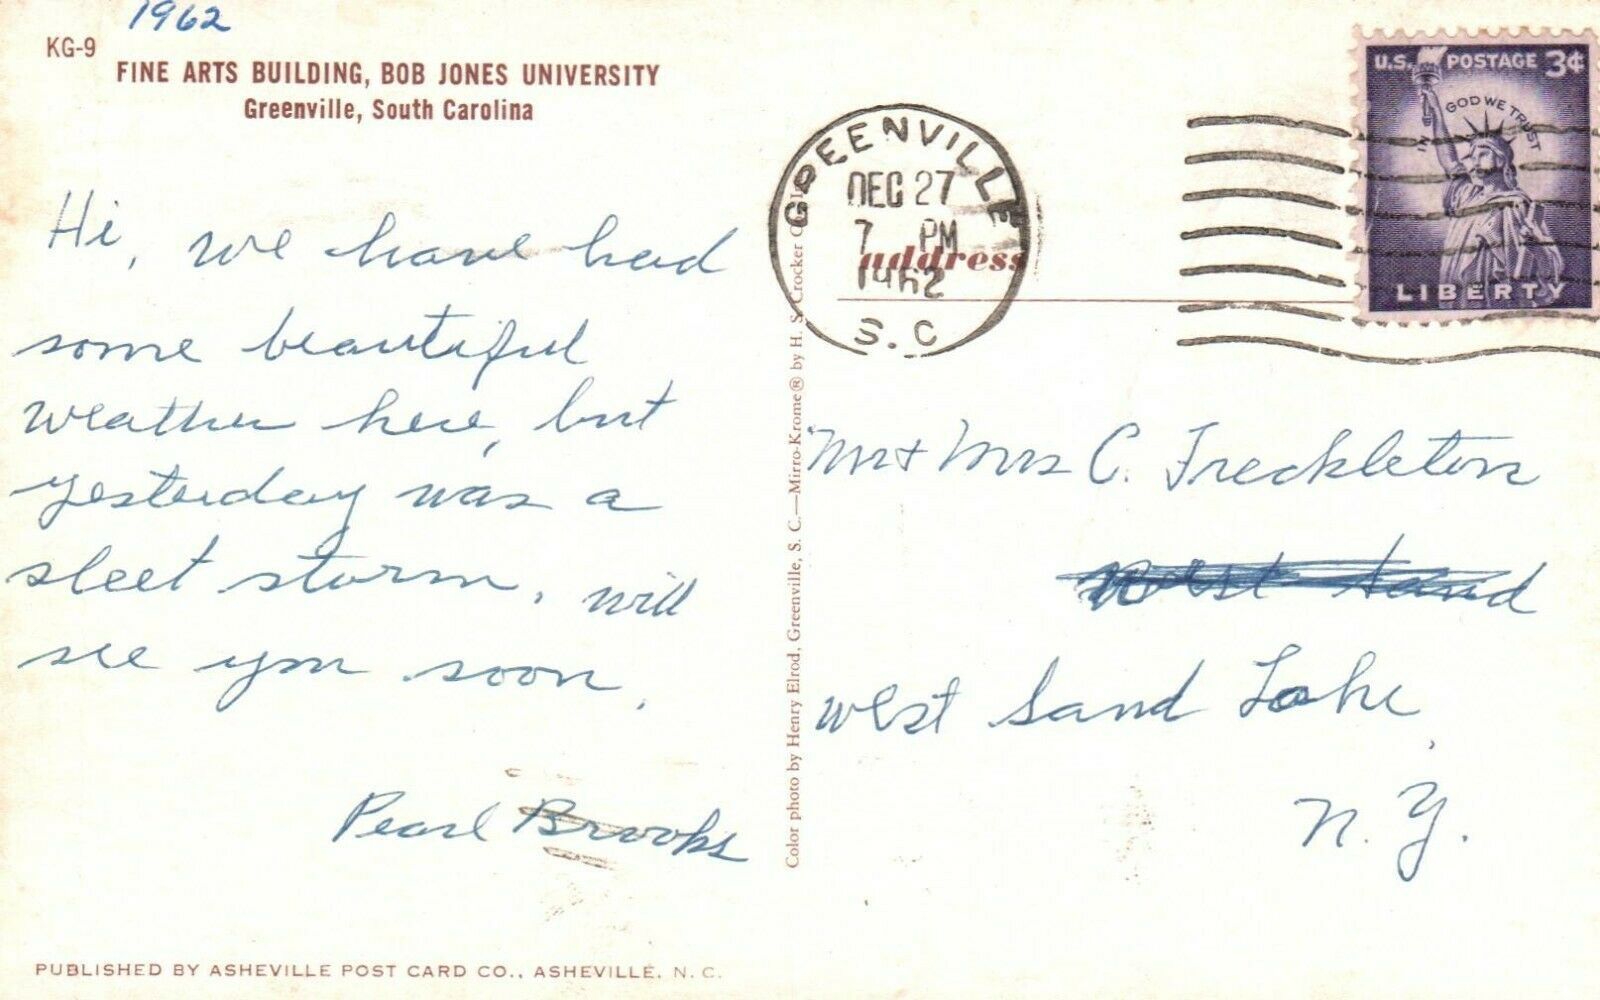 1962
KG-9
FINE ARTS BUILDING, BOB JONES UNIVERSITY
Greenville, South Carolina
Hi, we have had
some beautiful
weather here, but
yesterday was a
sleet storm. will
see you soon.
Pearl Brooks
PUBLISHED BY ASHEVILLE POST CARD CO., ASHEVILLE, N. C.
Color photo by Henry Elrod, Greenville, S. C.—Mirro-Krome® by H. S. Crocker
GREENVILLE
DEC 27
7 PM
1962
S.C
address
U.S. POSTAGE 3¢
IN GOD WE TRUST
LIBERTY
Mr & Mrs C. Freckleton
West Sand
West Sand Lake,
N. Y.